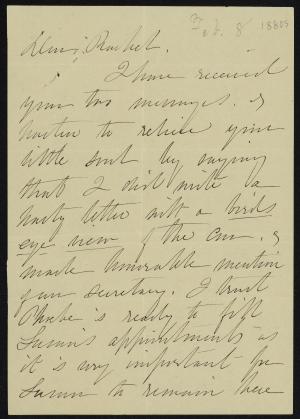 Feb. 8 1880s
Dear Rachel.
I have received
your two messages. &
hasten to relieve your
little soul by saying
that I did write a
hasty letter with a birds
eye view of the con. &
made honorable mention
our secretary. I trust
Phoebe is ready to fill
Susan's appointments as
it is very important for
Susan to remain there